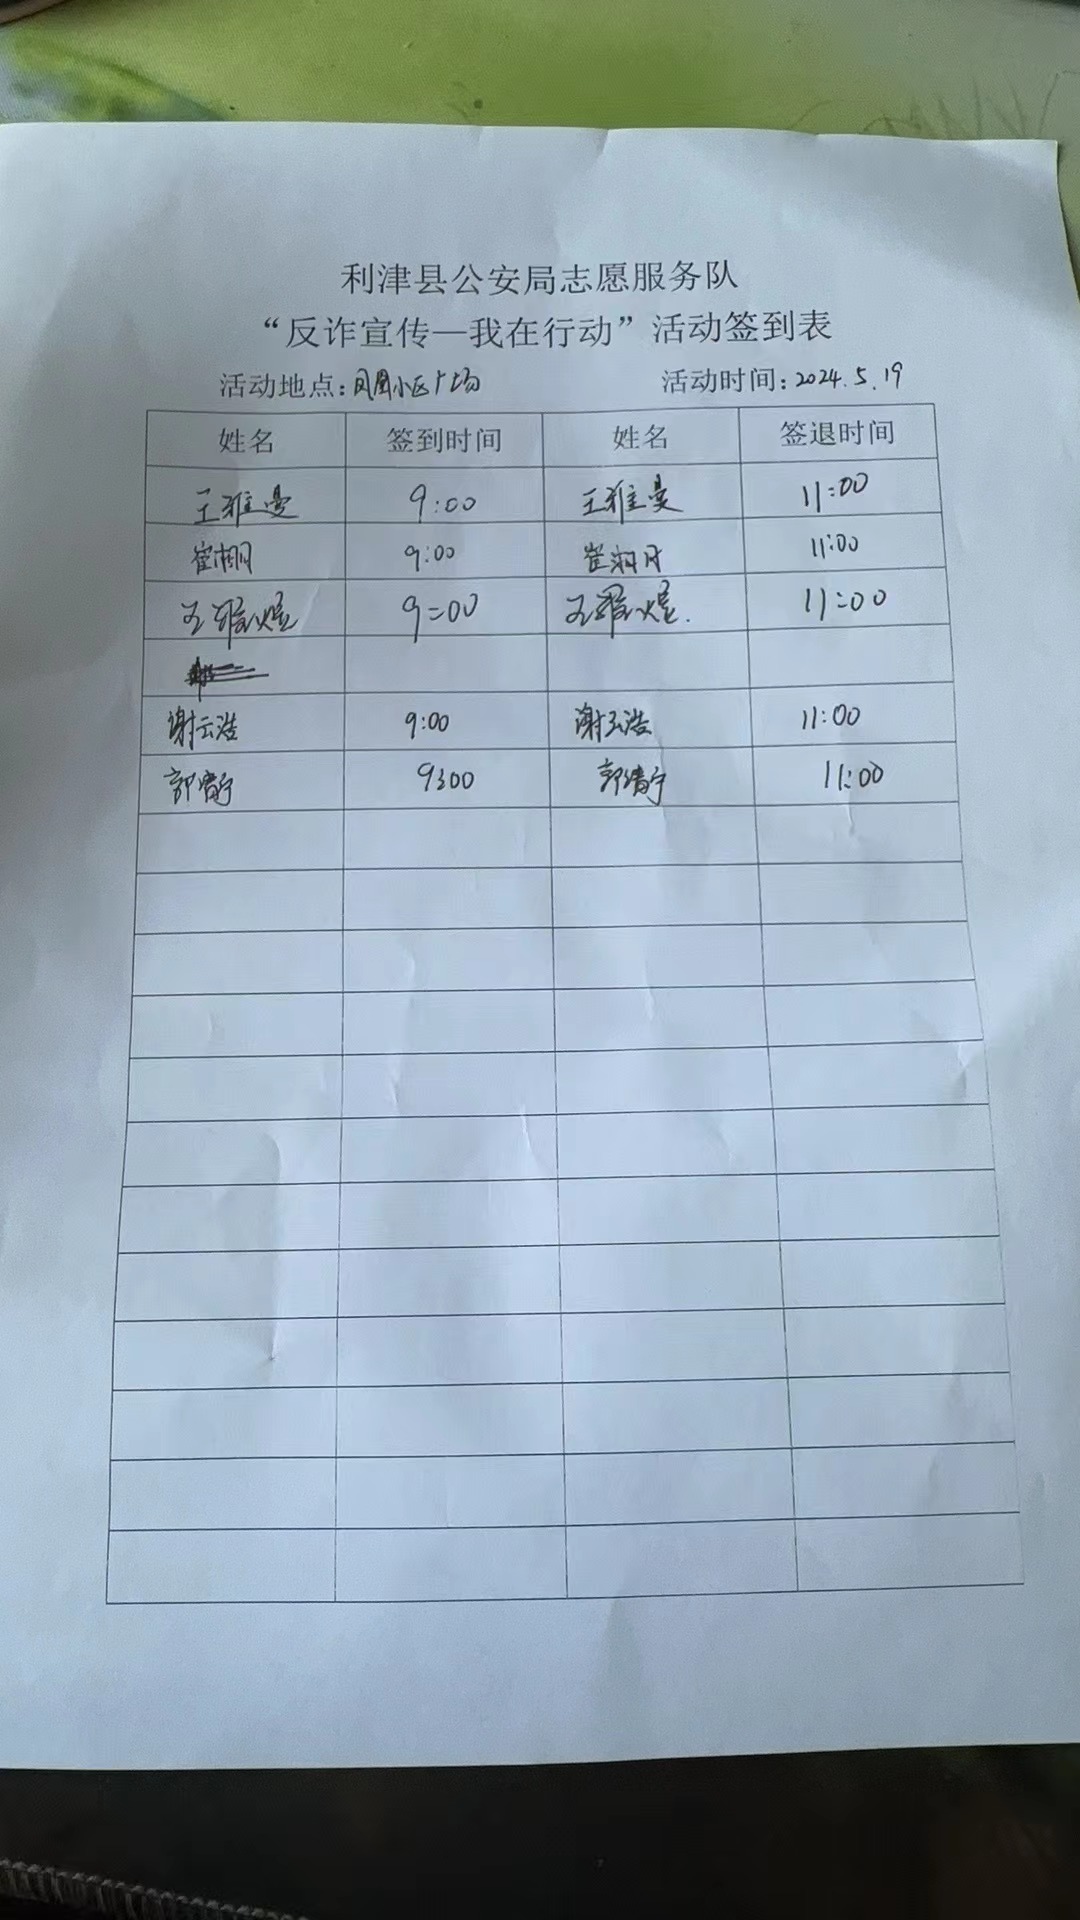 利津县公安局志愿服务队
“反诈宣传—我在行动”活动签到表
活动地点:凤凰小区广场 活动时间:2024.5.19
姓名 签到时间 姓名 签退时间
王雅曼 9:00 王雅曼 11:00
崔 9:00 崔 11:00
王 9:00 王 11:00
谢云浩 9:00 谢云浩 11:00
郭 9:00 郭 11:00